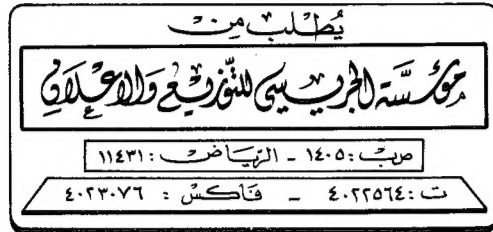 يُطْلَبُ مِنْ
مُؤَسَّسَة الجريسي للتَّوزيع وَالإعْلَان
ص.ب : ١٤٠٥ - الرّيَاض : ١١٤٣١
ت : ٤٠٢٢٥٦٤ - فَاكسْ : ٤٠٢٣٠٧٦